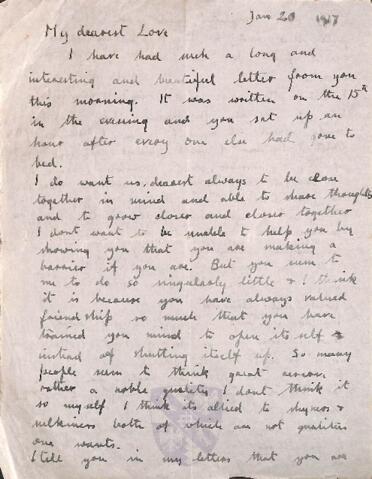 Jan 20 1917
My dearest Love
I have had such a long and
interesting and beautiful letter from you
this morning. It was written on the 15th
in the evening and you sat up an
hour after every one else had gone to
bed.
I do want us, dearest always to be close
together in mind and able to share thoughts
and to grow closer and closer together
I dont want to be unable to help you by
showing you that you are making a
barrier if you are. But you seem to
me to do so singularly little & I think
it is because you have always valued
friendship so much that you have
trained you mind to open its self
instead of shutting itself up. So many
people seem to think great
rather a noble qualities I dont think it
so myself I think its allied to shyness &
sulkiness both of which are not qualities
one wants.
I tell you in my letters that you are